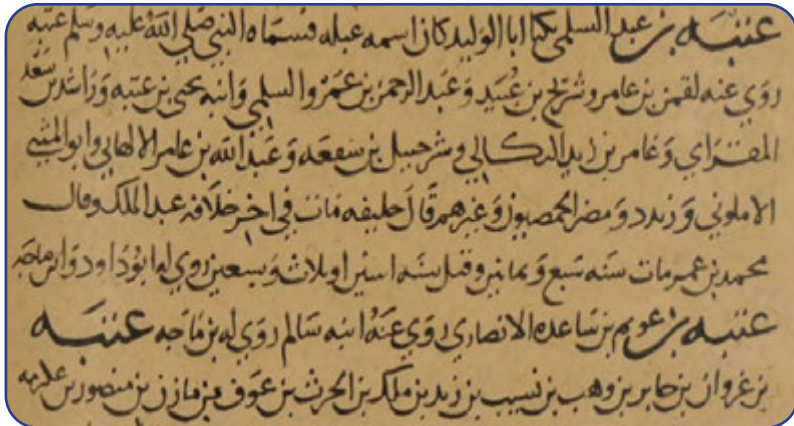 عتبة بن عبد السلمى يكنا ابا الوليد كان اسمه عبله فسماه النبي صلى الله عليه وسلم عتبه
روى عنه لقمن بن عامر وشريح بن عبيد وعبد الرحمن بن عمرو السلمي وابنه يحيى بن عتبه وراشد بن سعد
المقراي وعامر بن زيد البكالي وشرحبيل بن شفعه وعبد الله بن عامر الالهاني وابو المثنى
الاملوكي وزيد ومضر الحمصيون وغيرهم قال خليفه مات في اخر خلافه عبد الملك وقال
محمد بن عمر مات سنه سبع وثمانين وقيل سنه اثنين او ثلاث وسبعين روى له ابو داود وابن ماجه
عتبه بن عويم بن ساعده الانصاري روى عنه ابنه سالم روى له بن ماجه عتبه
بن غزوان بن جابر بن وهب بن نسيب بن زيد بن ملك بن الحرث بن عوف بن مازن بن منصور بن عكرمه